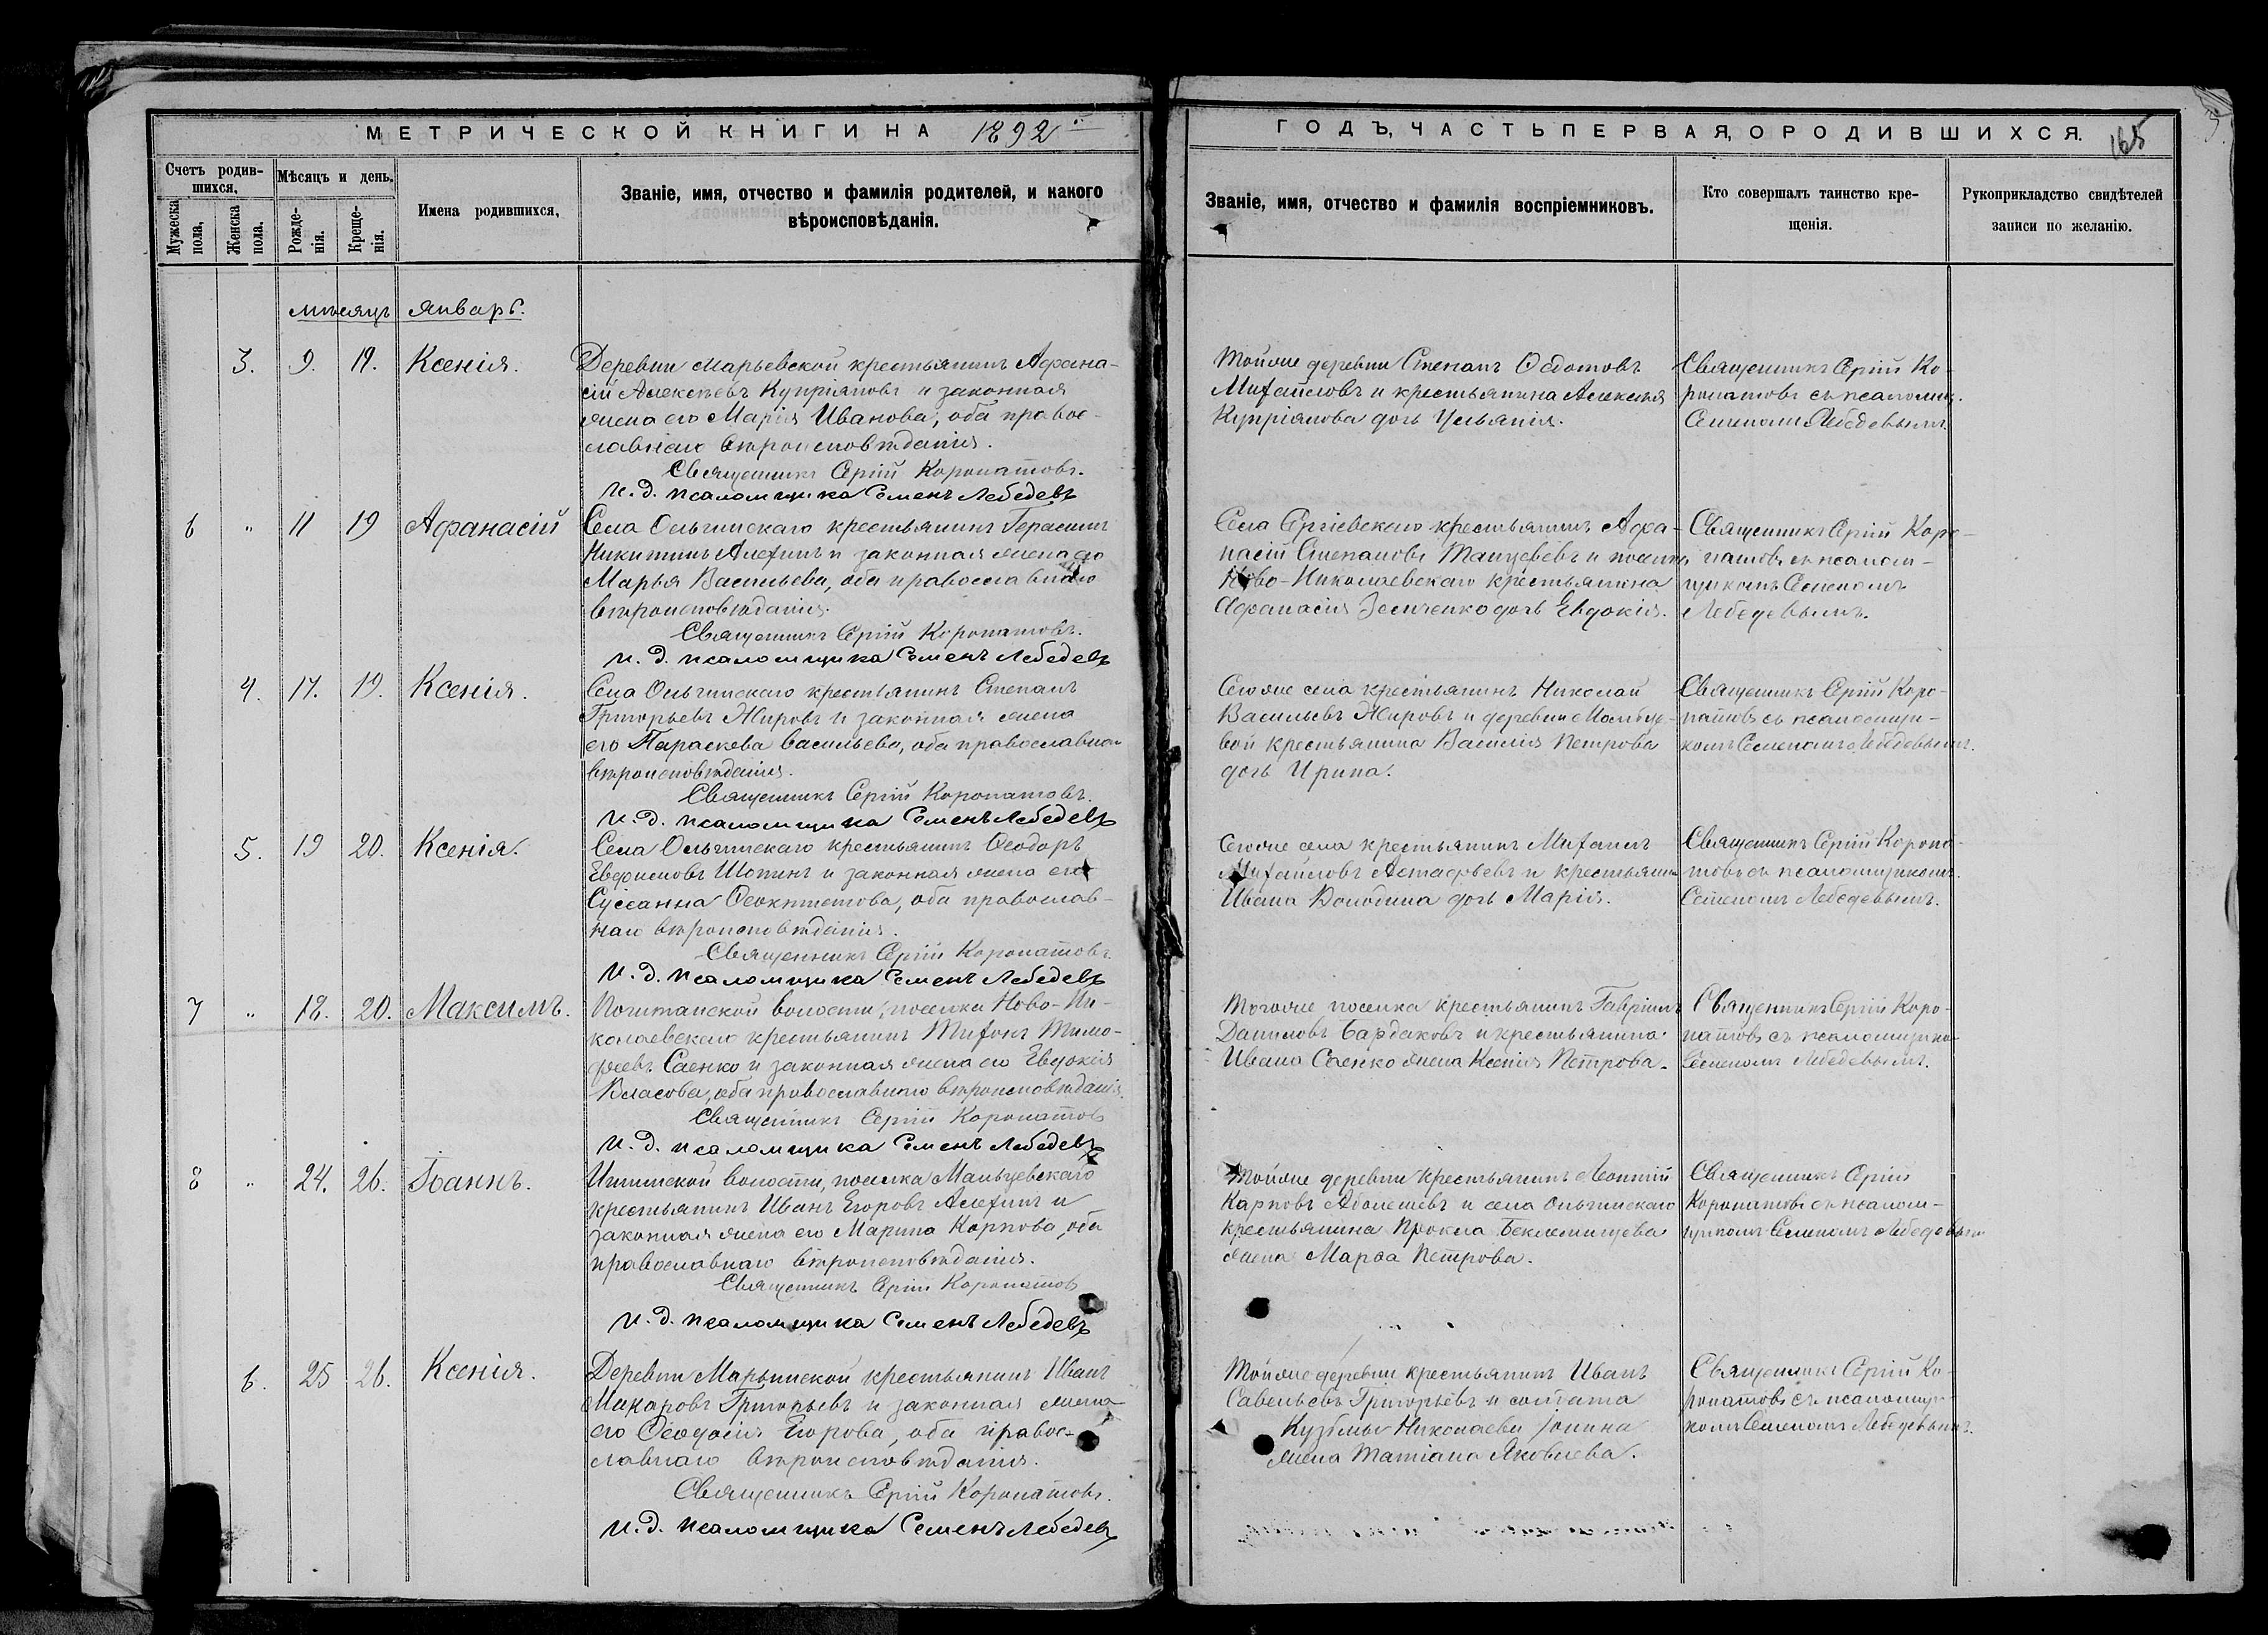 МЕТРИЧЕСКОЙ КНИГИ НА 1892
ГОДЪ, ЧАСТЬ ПЕРВАЯ, О РОДИВШИХСЯ.
165
Счетъ родив-
шихся,
Мѣсяцъ и день.
Мужеска пола,
Женска пола.
Рожде-
нія.
Креще-
нія.
Имена родившихся,
Званіе, имя, отчество и фамилія родителей, и какого
вѣроисповѣданія.
Званіе, имя, отчество и фамилія воспріемниковъ.
Кто совершалъ таинство кре-
щенія.
Рукоприкладство свидѣтелей
записи по желанію.
мѣсяцъ январь.
3. 9. 19. Ксенія.
Деревни Марьевской крестьянинъ Афана-
сій Алексѣевъ Купріяновъ и законная
жена его Марія Иванова, оба правос-
лавнаго вѣроисповѣданія.
Священникъ Сергій Коронатовъ.
И. д. псаломщика Семенъ Лебедевъ
Тойже деревни Степанъ
Михайловъ и крестьянина Алексѣя
Купріянова дочь
Священникъ Сергій Ко-
ронатовъ съ псаломщ.
Семеномъ Лебедевымъ.
6 " 11 19 Афанасій
Села Ольгинскаго крестьянинъ Герасимъ
Никитинъ Алехинъ и законная жена его
Марья Васильева, оба православнаго
вѣроисповѣданія.
Священникъ Сергій Коронатовъ.
И. д. псаломщика Семенъ Лебедевъ
Села Сергіевскаго крестьянинъ Афа-
насій Степановъ и поселка
Ново-Николаевскаго крестьянина
Афанасія Зенченко дочь Евдокія.
Священникъ Сергій Коро-
натовъ съ псалом-
щикомъ Семеномъ
Лебедевымъ.
4. 17. 19. Ксенія.
Села Ольгинскаго крестьянинъ Степанъ
Григорьевъ Жировъ и законная жена
его Параскева Васильева, оба православнаго
вѣроисповѣданія.
Священникъ Сергій Коронатовъ.
И. д. псаломщика Семенъ Лебедевъ
Сегоже села крестьянинъ Николай
Васильевъ Жировъ и деревни Мальце-
вой крестьянина Василія Петрова
дочь Ирина.
Священникъ Сергій Коро-
натовъ съ псаломщи-
комъ Семеномъ Лебедевымъ.
5. 19 20. Ксенія.
Села Ольгинскаго крестьянинъ Ѳеодоръ
Евфимовъ Шопинъ и законная жена его
Суссанна Ѳеоктистова, оба православ-
наго вѣроисповѣданія.
Священникъ Сергій Коронатовъ.
И. д. псаломщика Семенъ Лебедевъ
Сегоже села крестьянинъ Михаилъ
Михайловъ Астафьевъ и крестьянина
Ивана Володина дочь Марія.
Священникъ Сергій Корона-
товъ съ псаломщикомъ
Семеномъ Лебедевымъ.
7 " 18. 20. Максимъ.
волости, поселка Ново-Ни-
колаевскаго крестьянинъ Тихонъ Тимо-
феевъ Саенко и законная жена его Евдокія
Власова, оба православнаго вѣроисповѣданія.
Священникъ Сергій Коронатовъ
И. д. псаломщика Семенъ Лебедевъ
Тогоже поселка крестьянинъ Гавріилъ
Даниловъ Бардаковъ и крестьянина
Ивана Саенко жена Ксенія Петрова.
Священникъ Сергій Коро-
натовъ съ псаломщико
Семеномъ Лебедевымъ.
8 " 24. 26. Іоаннъ.
Ишимской волости, поселка Мальцевскаго
крестьянинъ Иванъ Егоровъ Алехинъ и
законная жена его Марина Карпова, оба
православнаго вѣроисповѣданія.
Священникъ Сергій Коронатовъ
И. д. псаломщика Семенъ Лебедевъ
Тойже деревни крестьянинъ Леонтій
Карповъ и села Ольгинскаго
крестьянина Прокла Беклемищева
жена Марѳа Петрова.
Священникъ Сергій
Коронатовъ съ псалом-
щикомъ Семеномъ Лебедевым
6. 25 26. Ксенія.
Деревни Марьинской крестьянинъ Иванъ
Макаровъ Григорьевъ и законная жена
его Ѳеодосія Егорова, оба правос-
лавнаго вѣроисповѣданія.
Священникъ Сергій Коронатовъ.
И. д. псаломщика Семенъ Лебедевъ
Тойже деревни крестьянинъ Иванъ
Савельевъ Григорьевъ и солдата
Кузьмы Николаева
жена Татіана Яковлева.
Священникъ Сергій Ко-
ронатовъ съ псаломщи-
комъ Семеномъ Лебедевымъ.